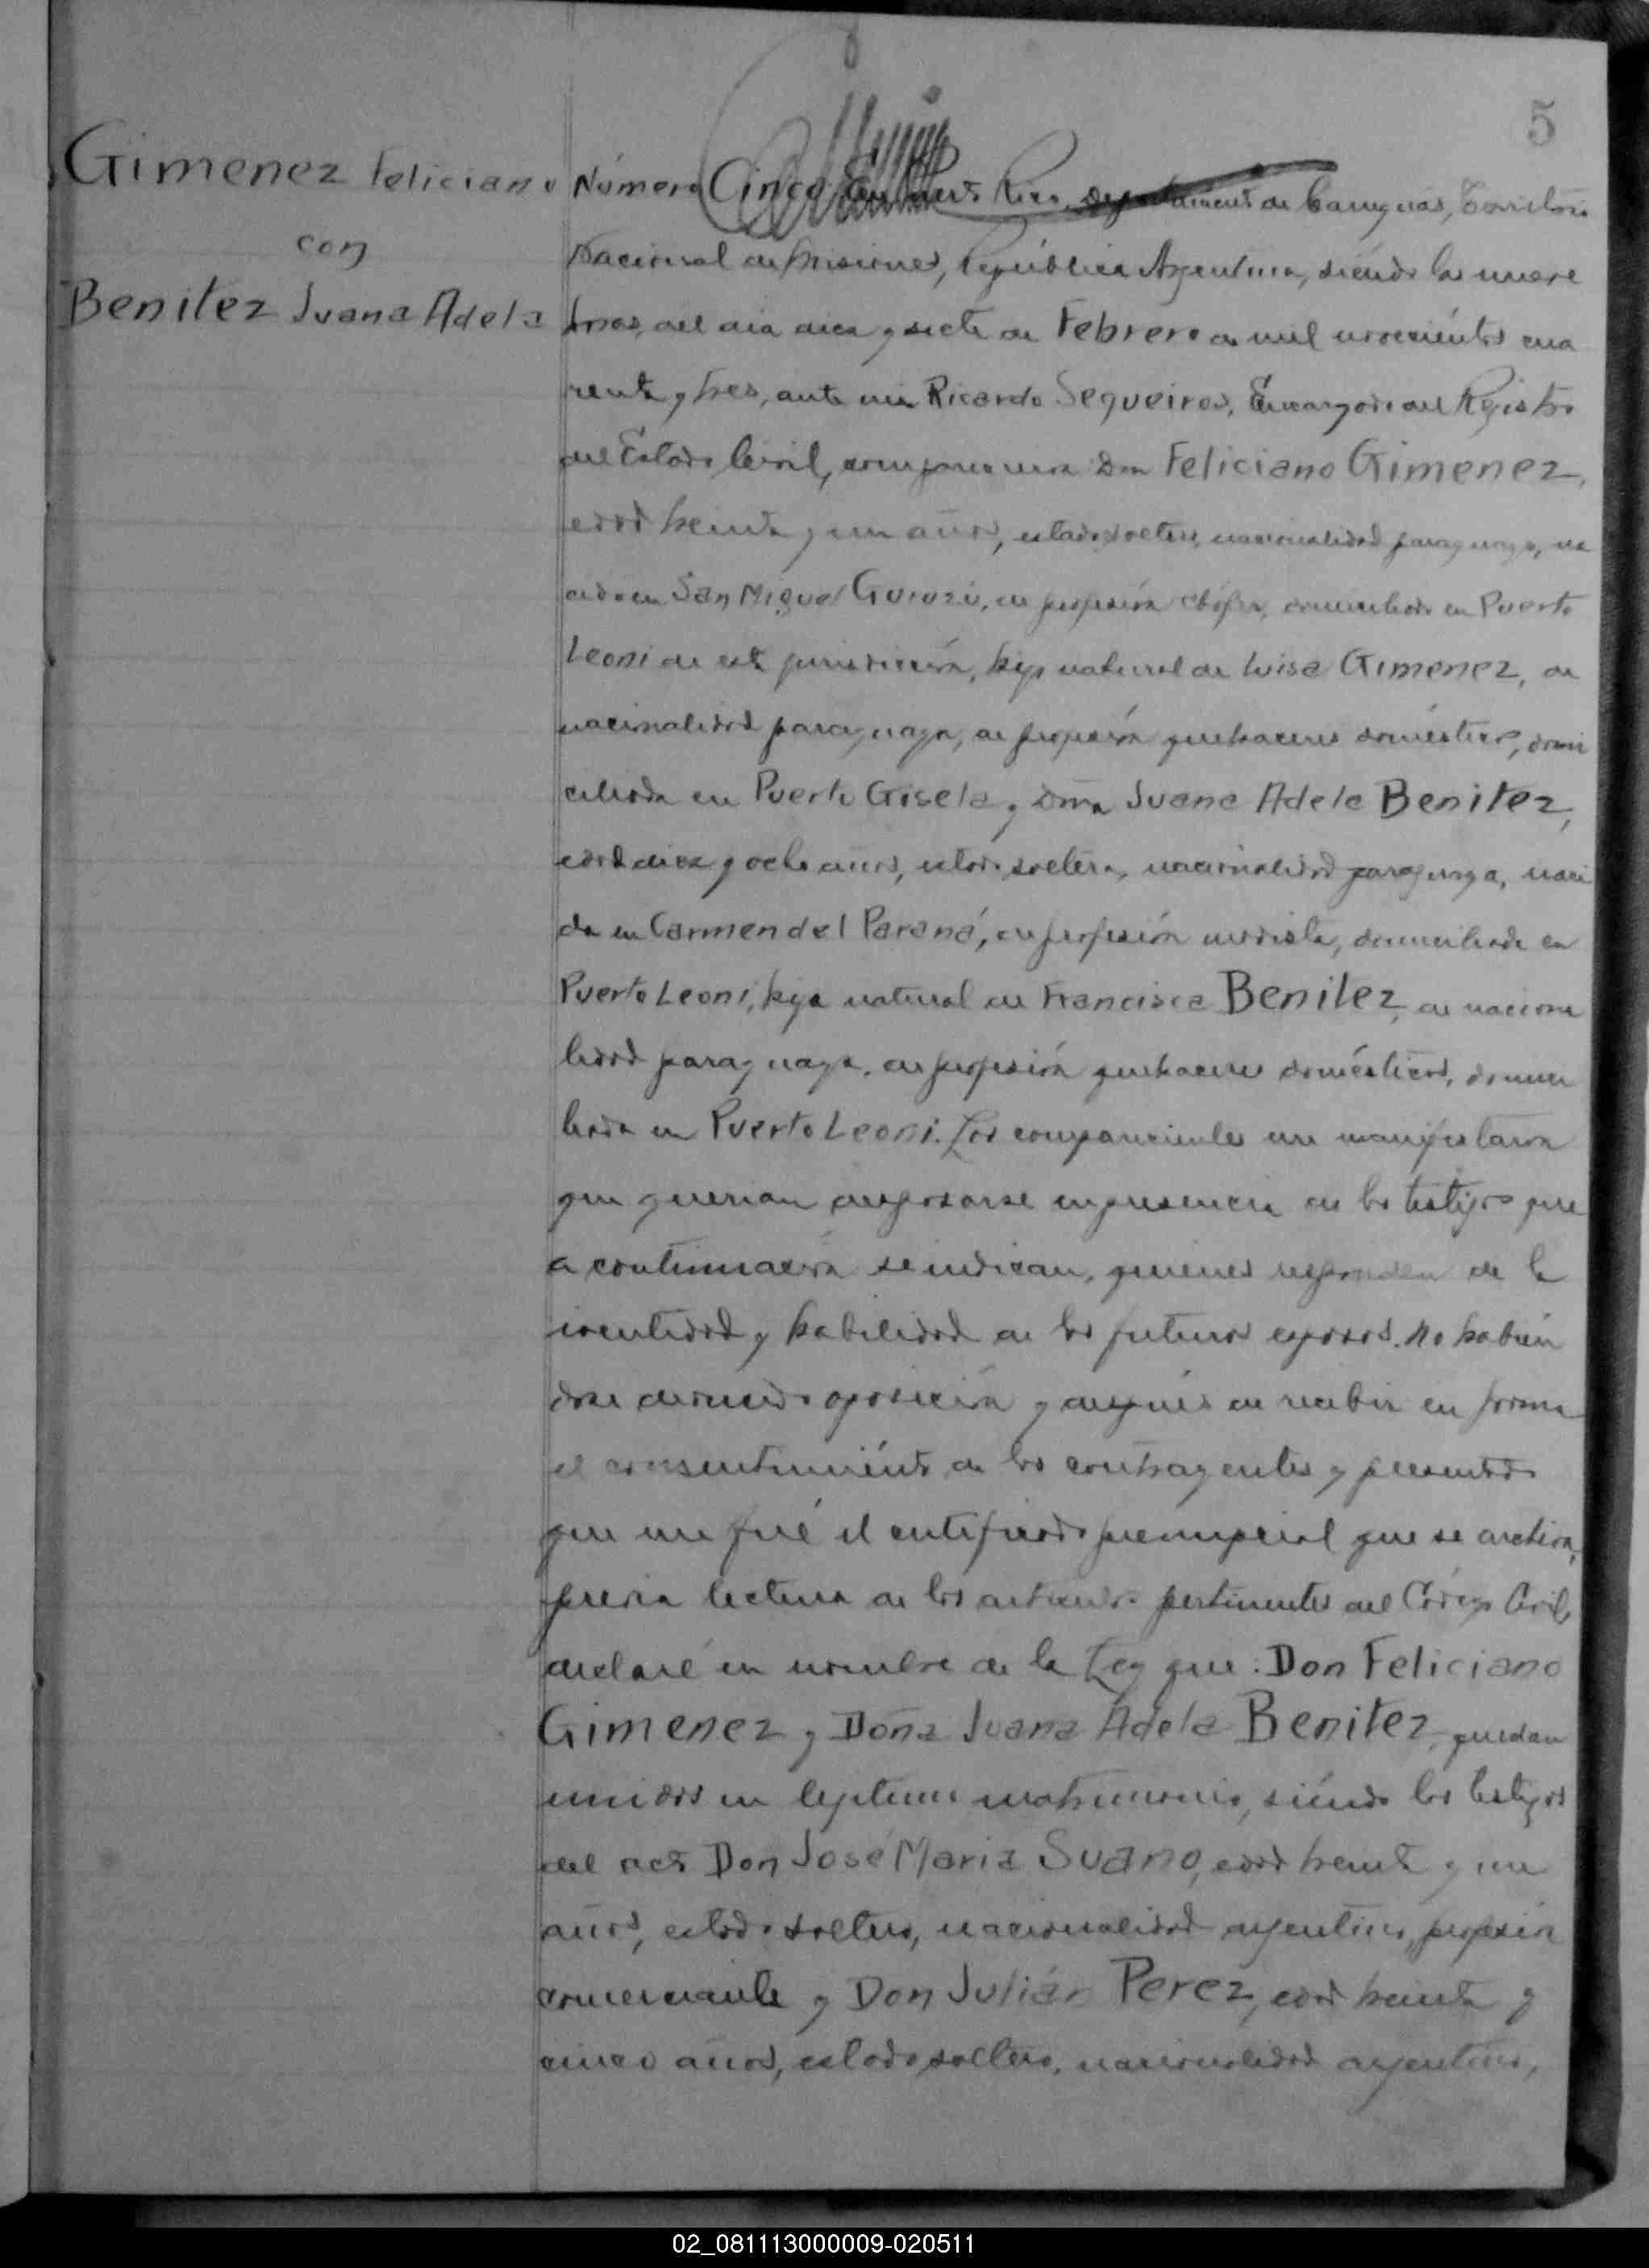 5
Gimenez Feliciano
con
Benitez Juana Adela
Número Cinco En Puerto Rico, Departamento de Cainguás, Territorio
Nacional de Misiones, República Argentina, siéndo las nueve
horas, del dia diez y siete de Febrero de mil novecientos cua
renta y tres, ante mi Ricardo Sequeiros, Encargado del Registro
del Estado Civil, comparecieron: Don Feliciano Gimenez,
edad treinta y un años, estado soltero, nacionalidad paraguaya, na
cido en San Miguel, de profesión chófer, domiciliado en Puerto
Leoni de esta jurisdicción, hijo natural de Luisa Gimenez, de
nacionalidad paraguaya, de profesión quehaceres domésticos, domi
ciliada en Puerto Gisela y Doña Juana Adela Benitez,
edad diez y ocho años, estado soltera, nacionalidad paraguaya, naci
da en Carmen del Paraná, de profesión modista, domiciliada en
Puerto Leoni, hija natural de Francisca Benitez, de naciona
lidad paraguaya, de profesión quehaceres domésticos, domici
liada en Puerto Leoni. Los comparecientes me manifestaron
que querian desposarse en presencia de los testigos que
a continuación se indican, quienes responden de la
identidad y habilidad de los futuros esposos. No habién
dose deducido oposición y después de recibir en forma
el consentimiénto de los contrayentes y presentado
que me fué el certificado prenupcial que se archiva,
previa lectura de los articulos pertinentes del Código Civil,
declaré en nombre de la Ley que: Don Feliciano
Gimenez y Doña Juana Adela Benitez, quedan
unidos en legitimo matrimonio, siéndo los testigos
del acto Don José Maria Suano, edad treinta y un
años, estado soltero, nacionalidad argentino, profesión
comerciante y Don Julián Perez, edad treinta y
cinco años, estado soltero, nacionalidad argentino,
02_081113000009-020511